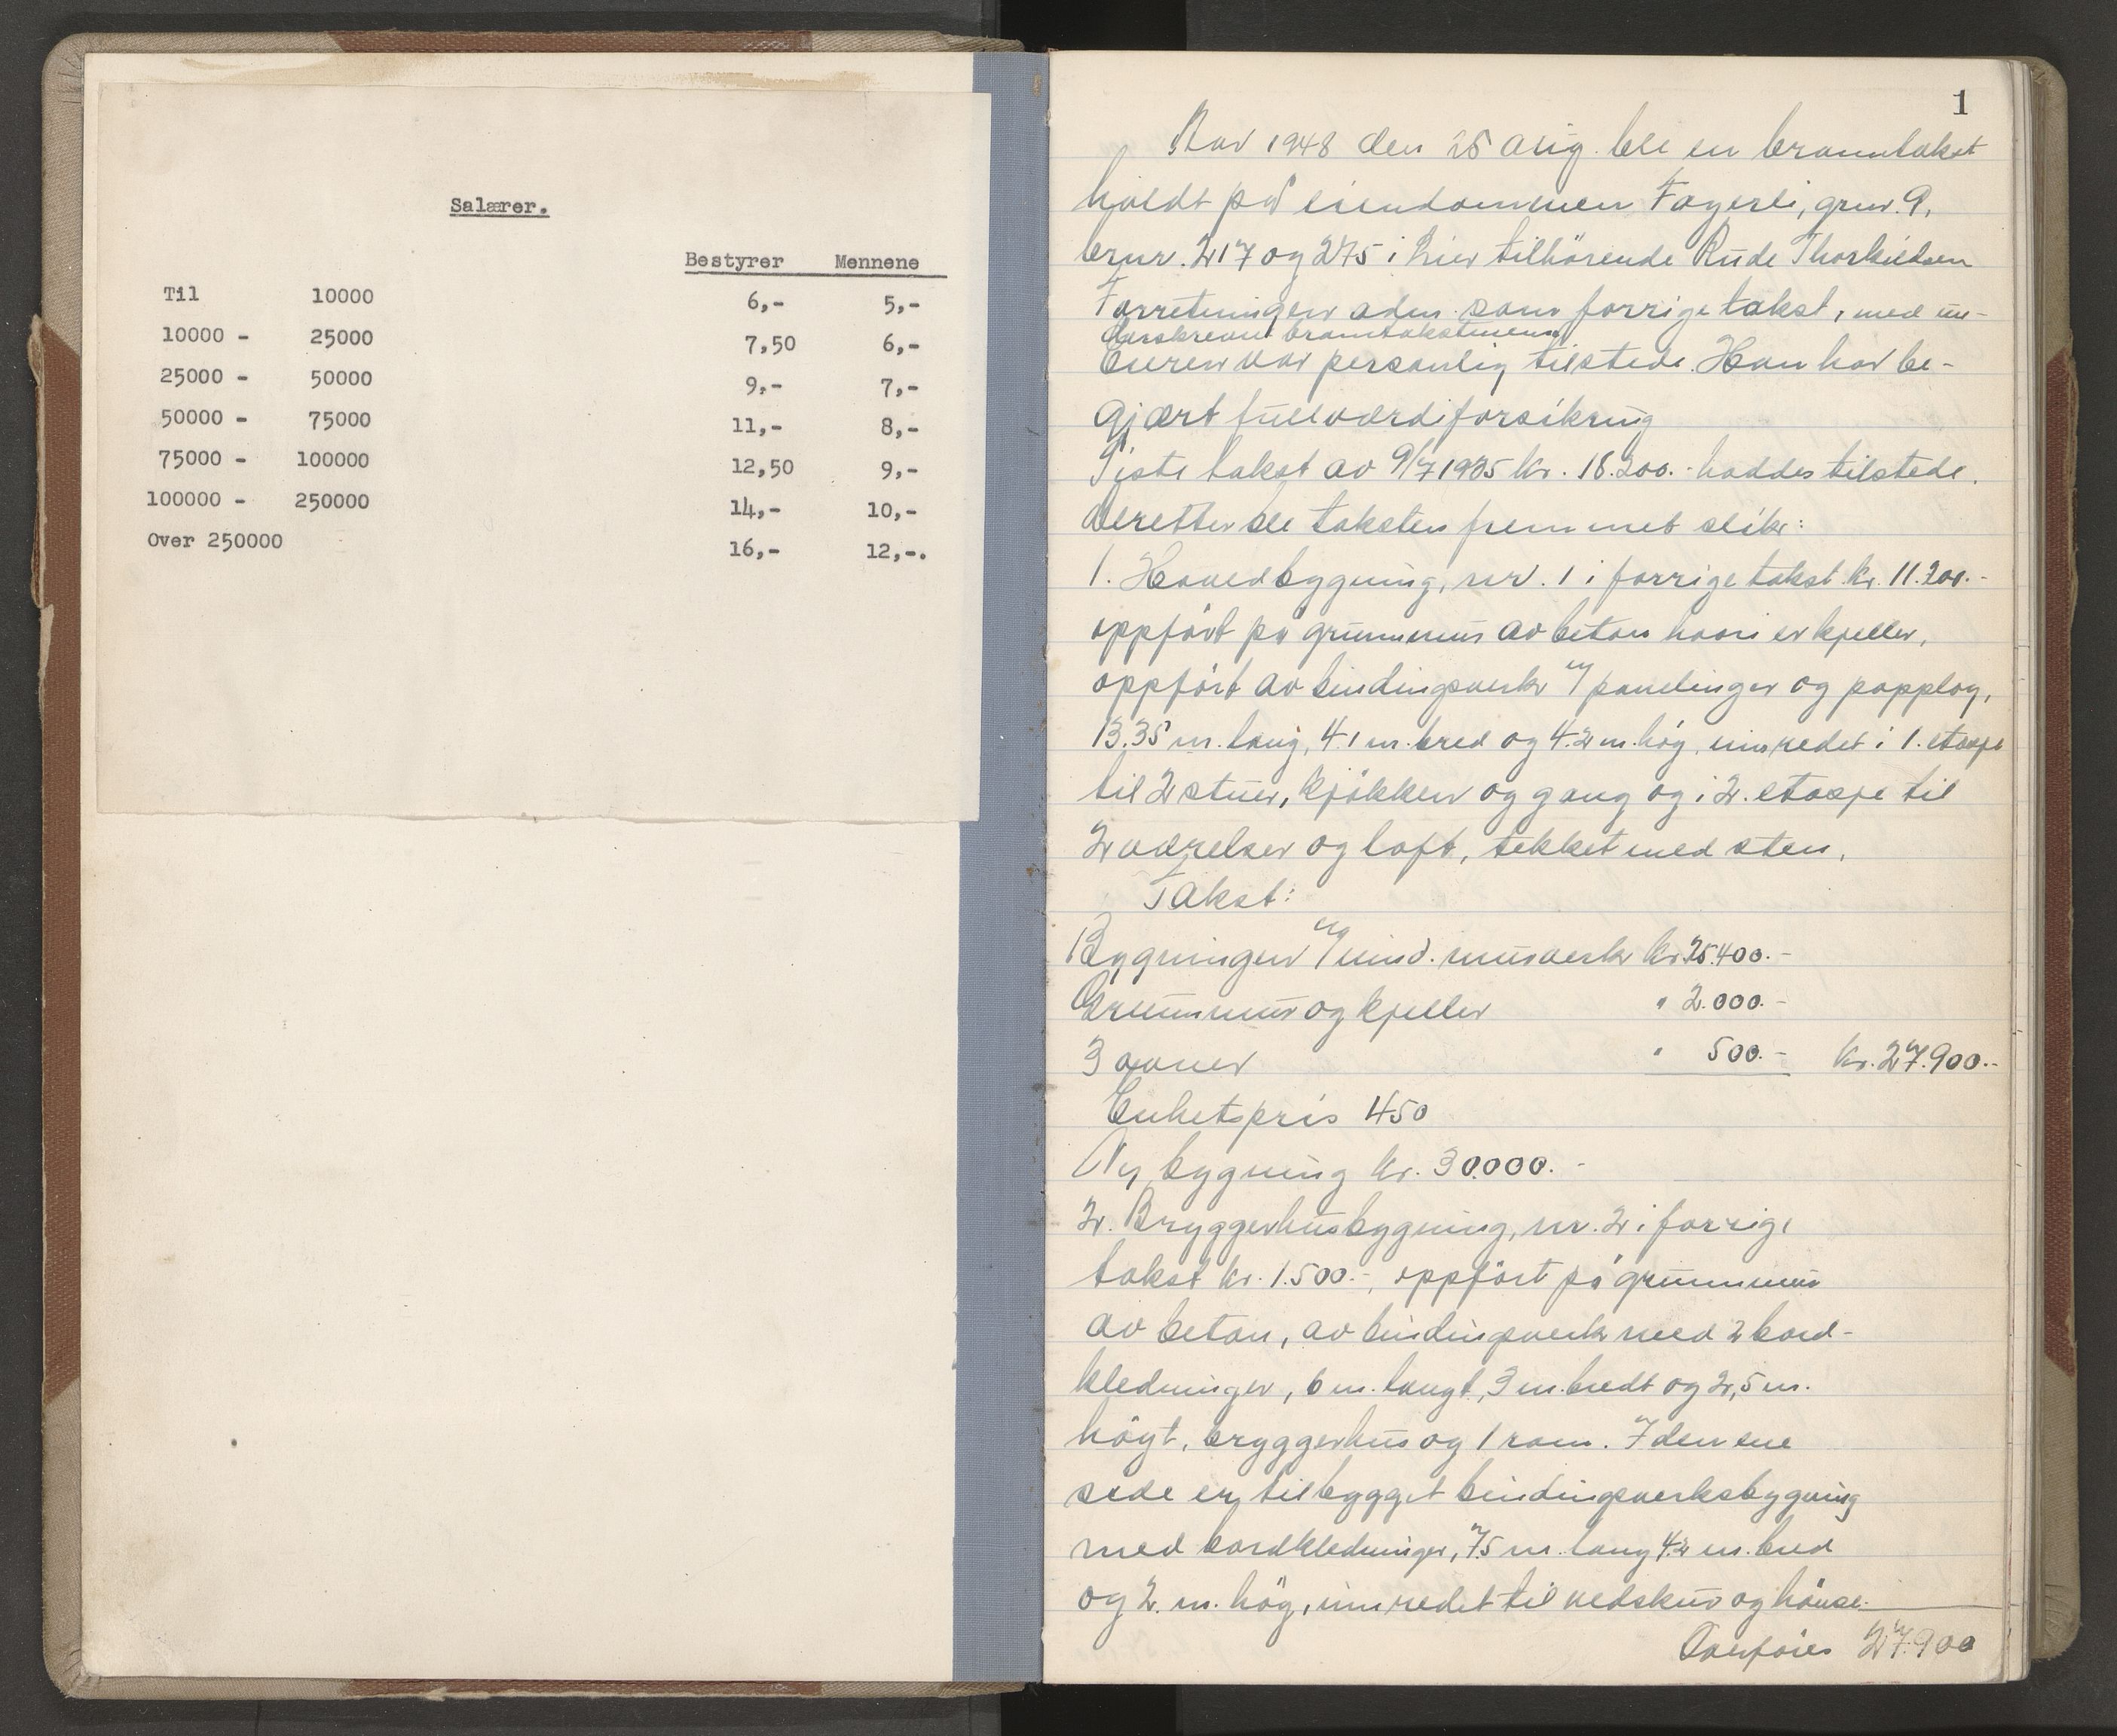 Salærer.
Bestyrer Mennene
Til 10000 6,- 5,-
10000 - 25000 7,50 6,-
25000 - 50000 9,- 7,-
50000 - 75000 11,- 8,-
75000 - 100000 12,50 9,-
100000 - 250000 14,- 10,-
Over 250000 16,- 12,-.
1
1948 den 25 aug. ble en branntakst
holdt på eiendommen Fagerli, grnr. 9,
brnr. 217 og 275 i tilhörende Thorkildsen
Forretningen adm. som forrige takst, med un-
derskrevne branntakstmenn
Eieren var personlig tilstede. Han har be-
gjært fullværdiforsikring
Siste takst av 9/7 1935 kr. 18.200.- haddes tilstede.
Deretter ble taksten fremmet slik:
1. Hovedbygning, nr. 1 i forrige takst kr. 11.200.-
oppfört på grunnmur av beton hvori er kjeller,
oppfört av bindingsverk m/ panelinger og papplag,
13.35 m. lang, 4.1 m. bred og 4.2 m. hög, innredet i 1. etasje
til 2 stuer, kjökken og gang og i 2. etasje til
2 værelser og loft, tekket med sten.
Takst:
Bygningen m/ innv. murverk kr. 25.400.-
Grunnmur og kjeller " 2.000.-
3 ovner " 500.- kr. 27.900.-
Enhetspris 450
Ny bygning kr. 30000.-
2. Bryggerhusbygning, nr. 2 i forrige
takst kr. 1.500.-, oppfört på grunnmur
av beton, av bindingsverk med 2 bord-
kledninger, 6 m. langt, 3 m. bredt og 2,5 m.
högt, bryggerhus og 1 rom. I den ene
side er tilbygget bindingsverksbygning
med bordkledninger, 7.5 m. lang 4.2 m. bred
og 2. m. hög, innredet til vedskur og hönse-
Overföres 27.900